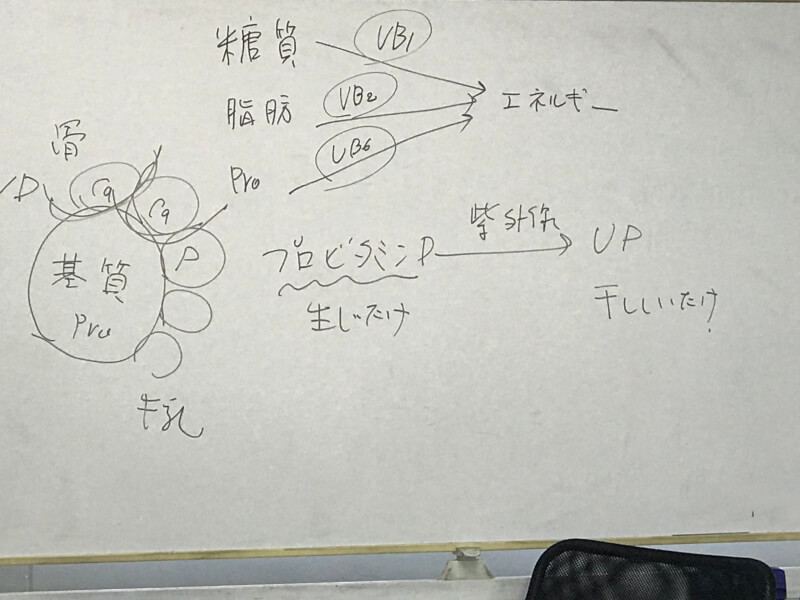 糖質 VB1
脂肪 VB2 エネルギー
Pro VB6
骨
VD Ca Ca
P
基質
Pro
牛乳
プロビタミンD 紫外線 VD
生しいたけ 干ししいたけ